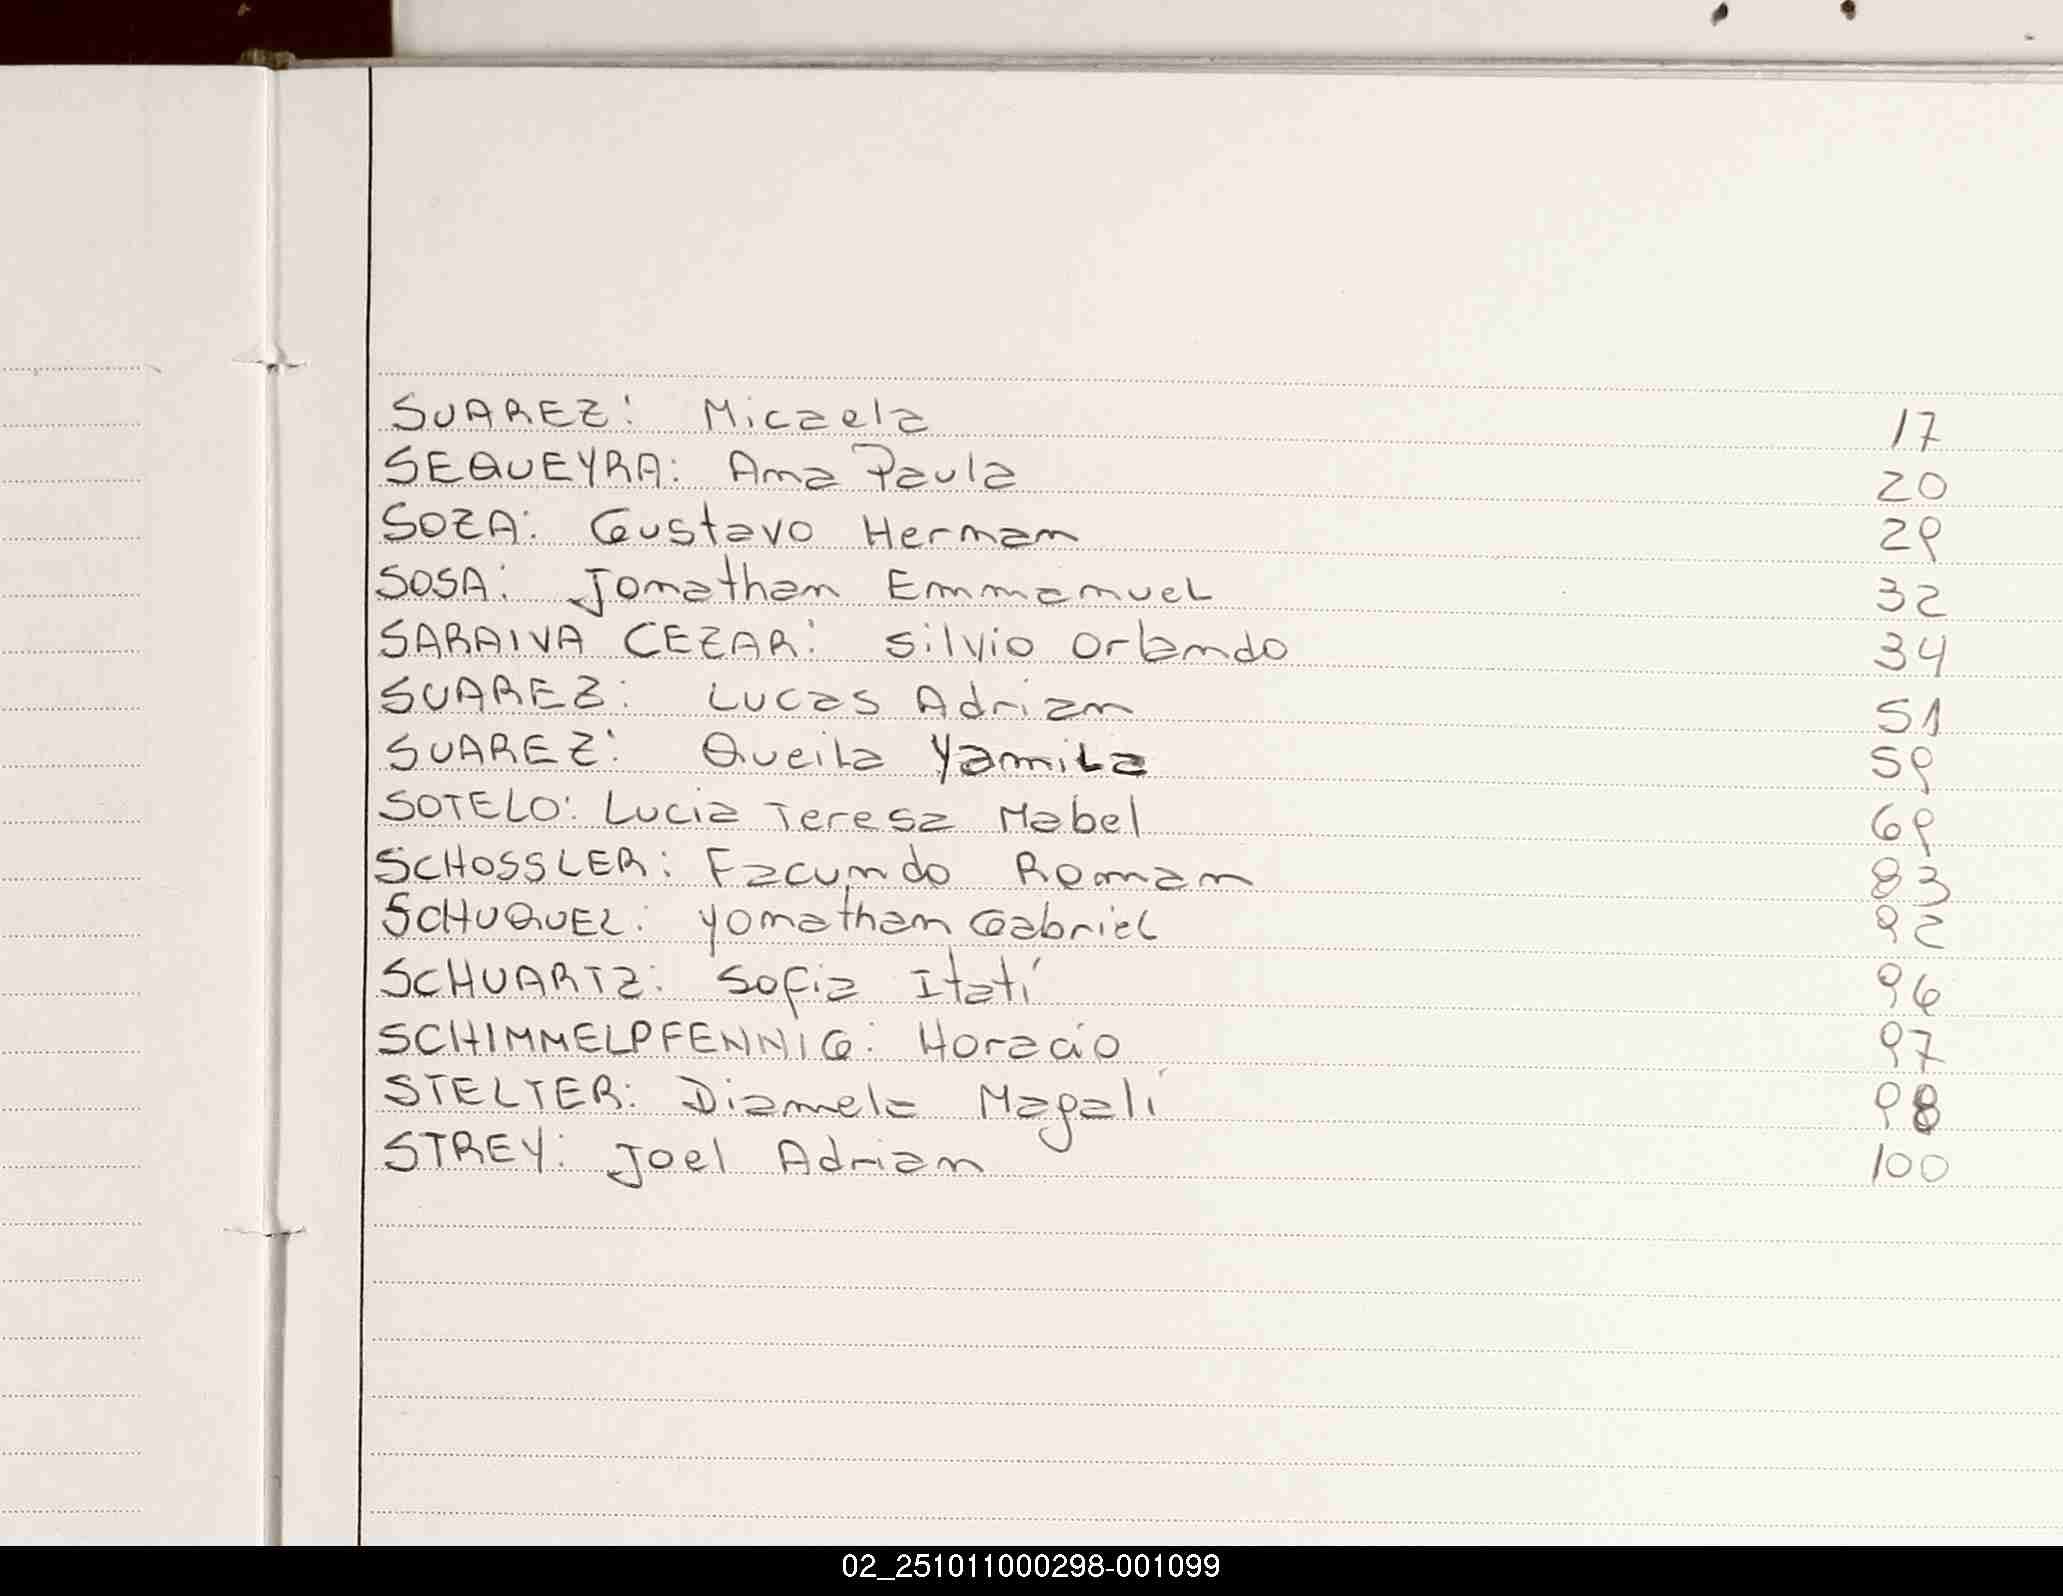 SUAREZ: Micaela 17
SEQUEYRA: Ana Paula 20
SOZA: Gustavo Hernan 29
SOSA: Jonathan Emmanuel 32
SARAIVA CEZAR: Silvio Orlando 34
SUAREZ: Lucas Adrian 51
SUAREZ: Queila Yamila 59
SOTELO: Lucia Teresa Mabel 69
SCHOSSLER: Facundo Roman 83
SCHUQUEL: Yonathan Gabriel 92
SCHUARTZ: Sofia Itatí 96
SCHIMMELPFENNIG: Horacio 97
STELTER: Diamela Magalí 98
STREY: Joel Adrian 100
02_251011000298-001099